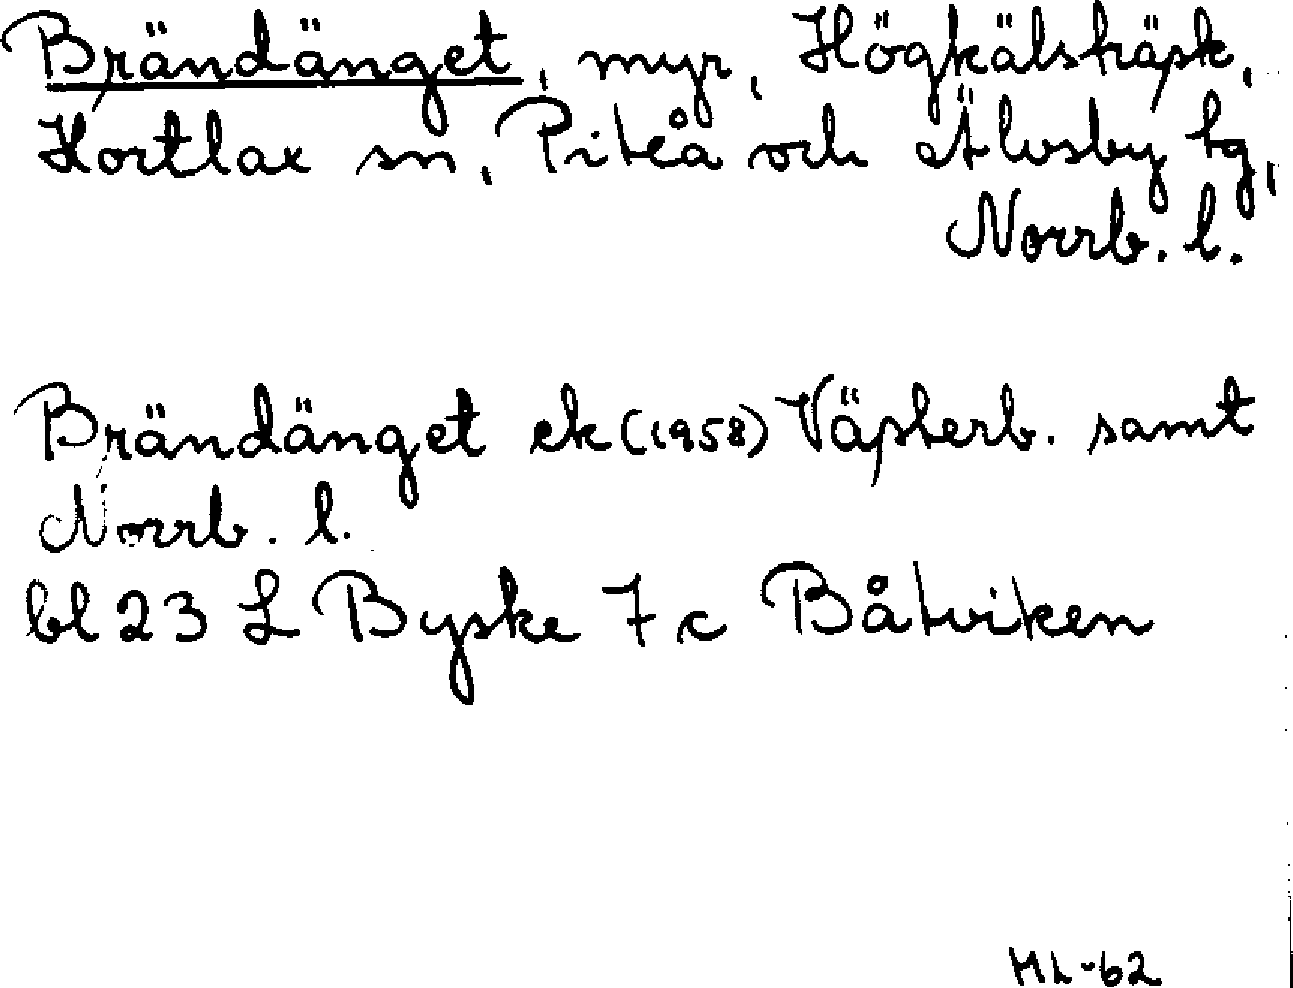 Brändänget, myr, Högkälsträsk,
Hortlax sn, Piteå och Älvsby tg,
Norrb. l.
Brändänget ek (1958) Västerb. samt
Norrb. l.
bl 23 L Byske 7 c Båtviken
ML-62